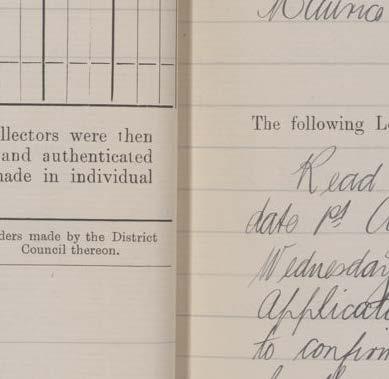 llectors were then
and authenticated
made in individual
ders made by the District
Council thereon.
Maurice
The following L
Read
date 1st
Wednesday
Applicat
to confirm